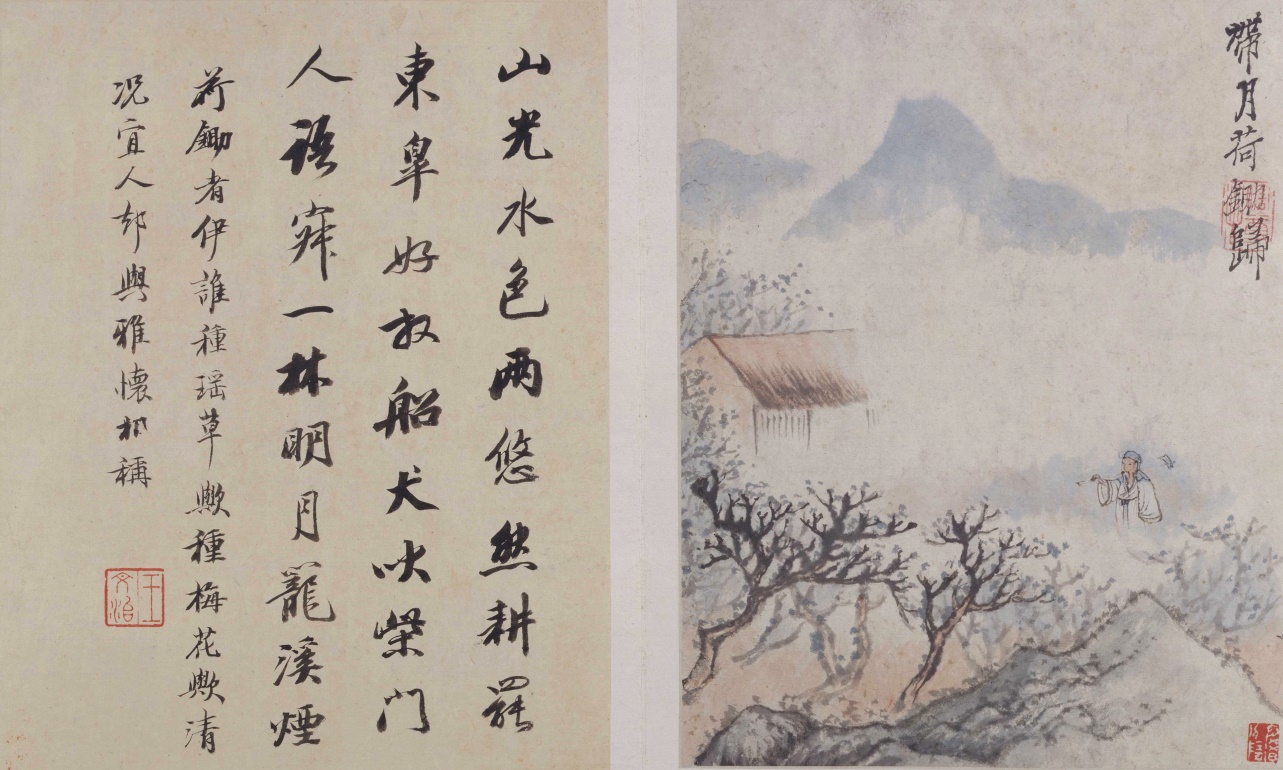 帶月荷鋤歸
山光水色兩悠然耕罷
東臯好放船犬吠柴門
人語寂一林明月籠溪煙
荷鋤者伊誰種瑶草歟種梅花歟清
况宜人却與雅懷相稱
王文治